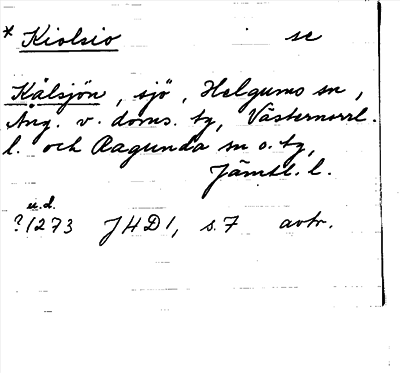 * Kiolsio se
Kälsjön, sjö, Helgums sn,
Ång. v. doms. tg, Västernorrl.
l. och Ragunda sn o. tg,
Jämtl. l.
u.d.
?1273 JHD1, s.7 avtr.